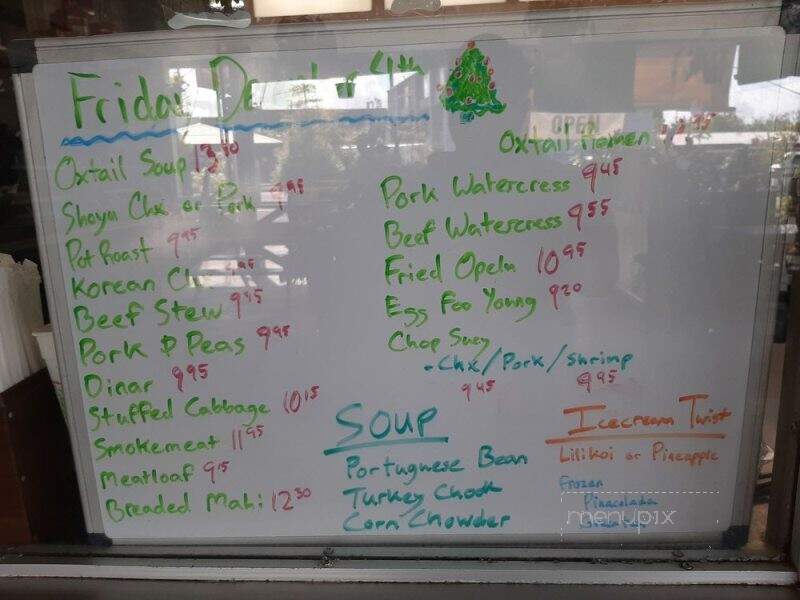 Friday December 4th
Oxtail Soup 13 50
Shoyu Chx or Pork 9 95
Pot Roast 9 95
Korean Chx 9 95
Beef Stew 9 95
Pork & Peas 9 95
Dinar 9 95
Stuffed Cabbage 10 15
Smokemeat 11 95
Meatloaf 9 15
Breaded Mahi 12 30
OPEN
Oxtail Ramen
Pork Watercress 9 45
Beef Watercress 9 55
Fried Opelu 10 95
Egg Foo Young 9 20
Chop Suey
- Chx/Pork/Shrimp
9 45 9 95
Soup
Portuguese Bean
Turkey Chook
Corn Chowder
Icecream Twist
Lilikoi or Pineapple
Frozen
Pinacolada
menupix